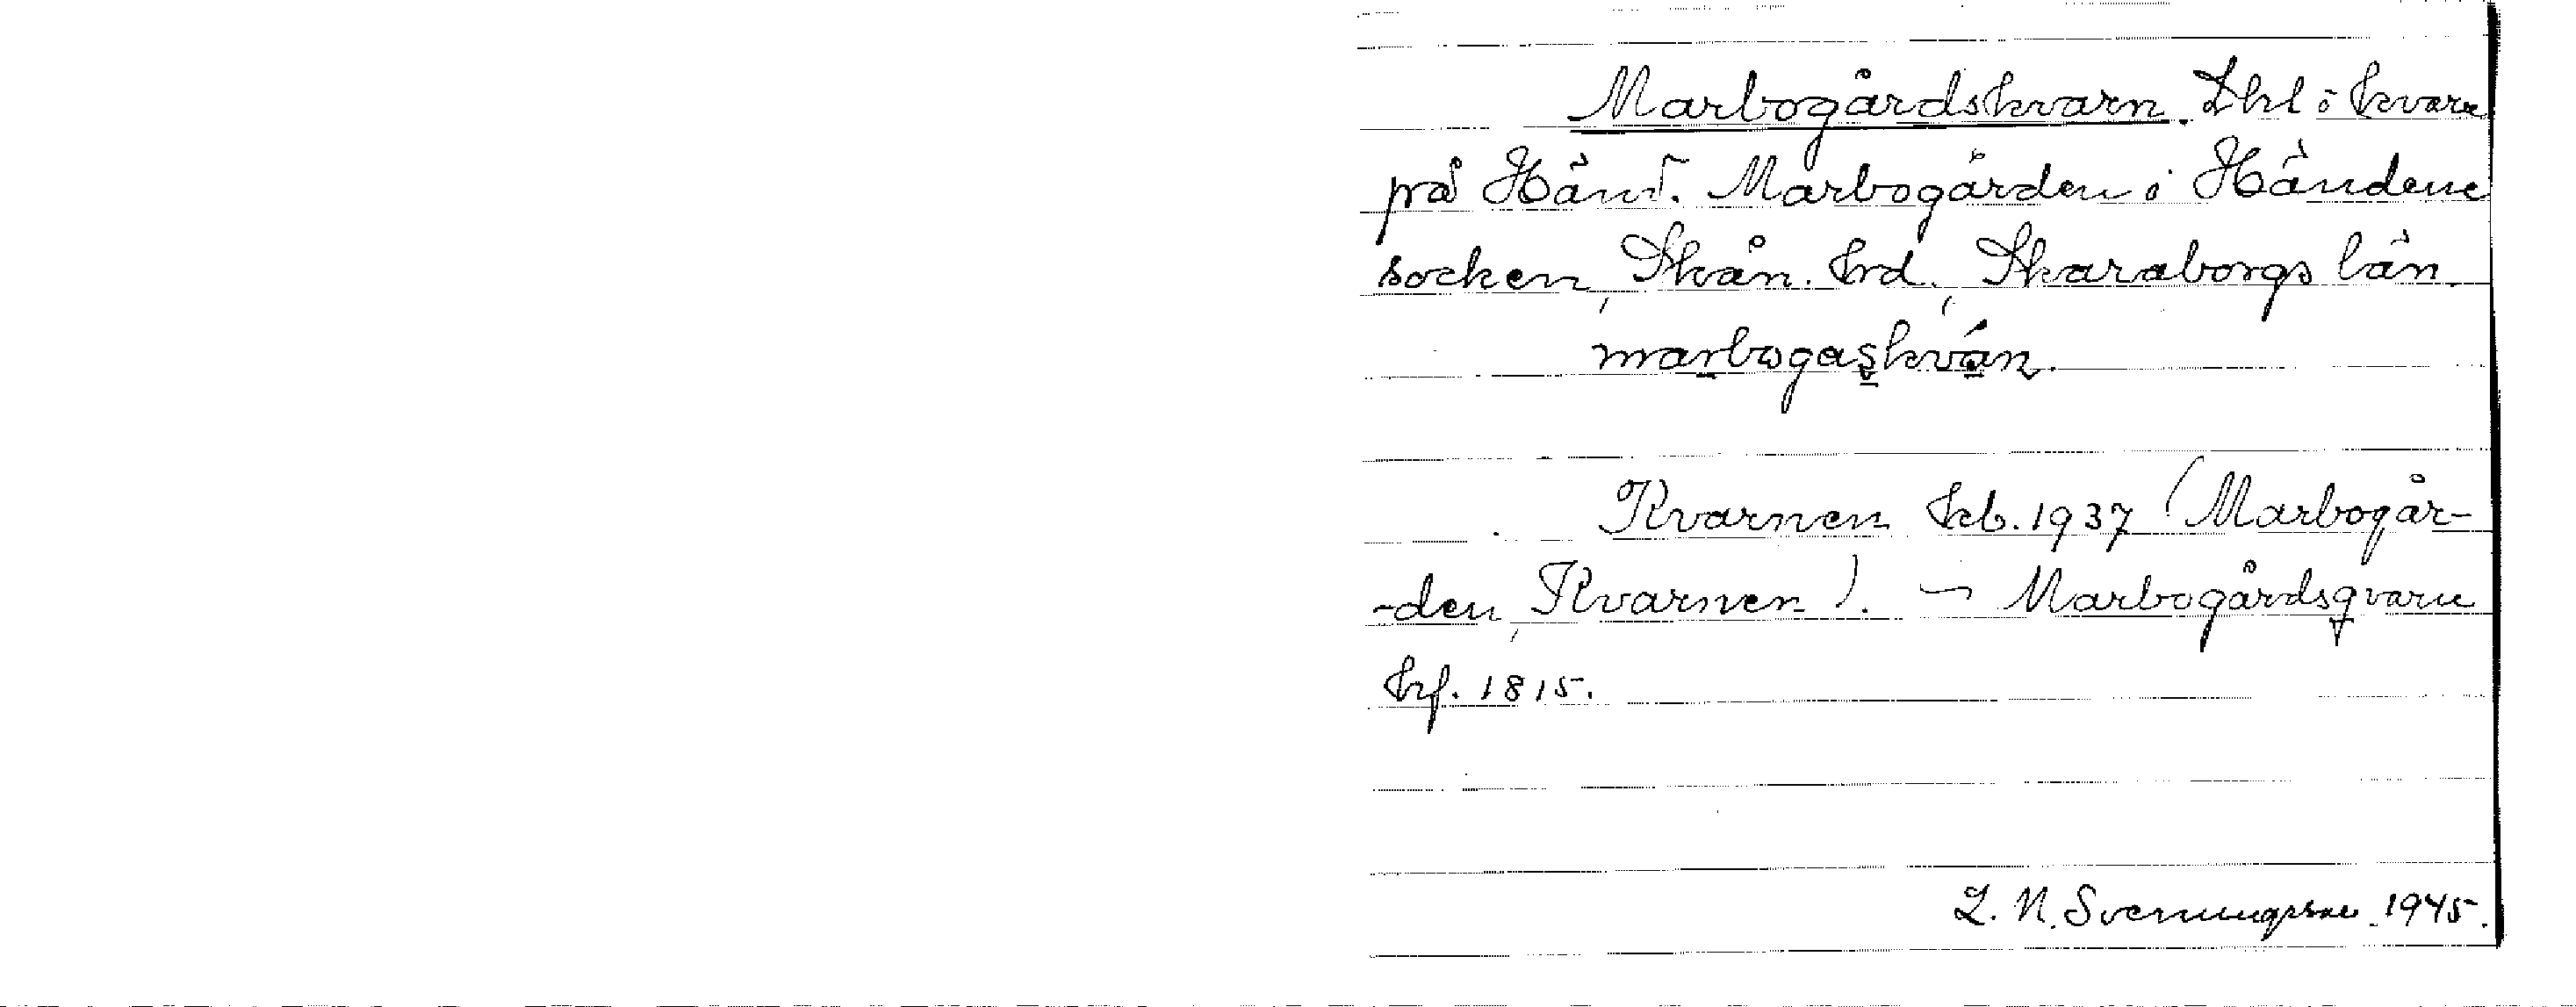 Marbogårdskvarn. Lhl o kvarn
på Häm. Marbogården i Händene
socken, Skån. hrd., Skaraborgs län.
marbogaskván.
Kvarnen kb. 1937 (Marbogår-
-den, Kvarnen). – Marbogårdsqvarn
hrf. 1815.
L. N. Svenungsson 1945.